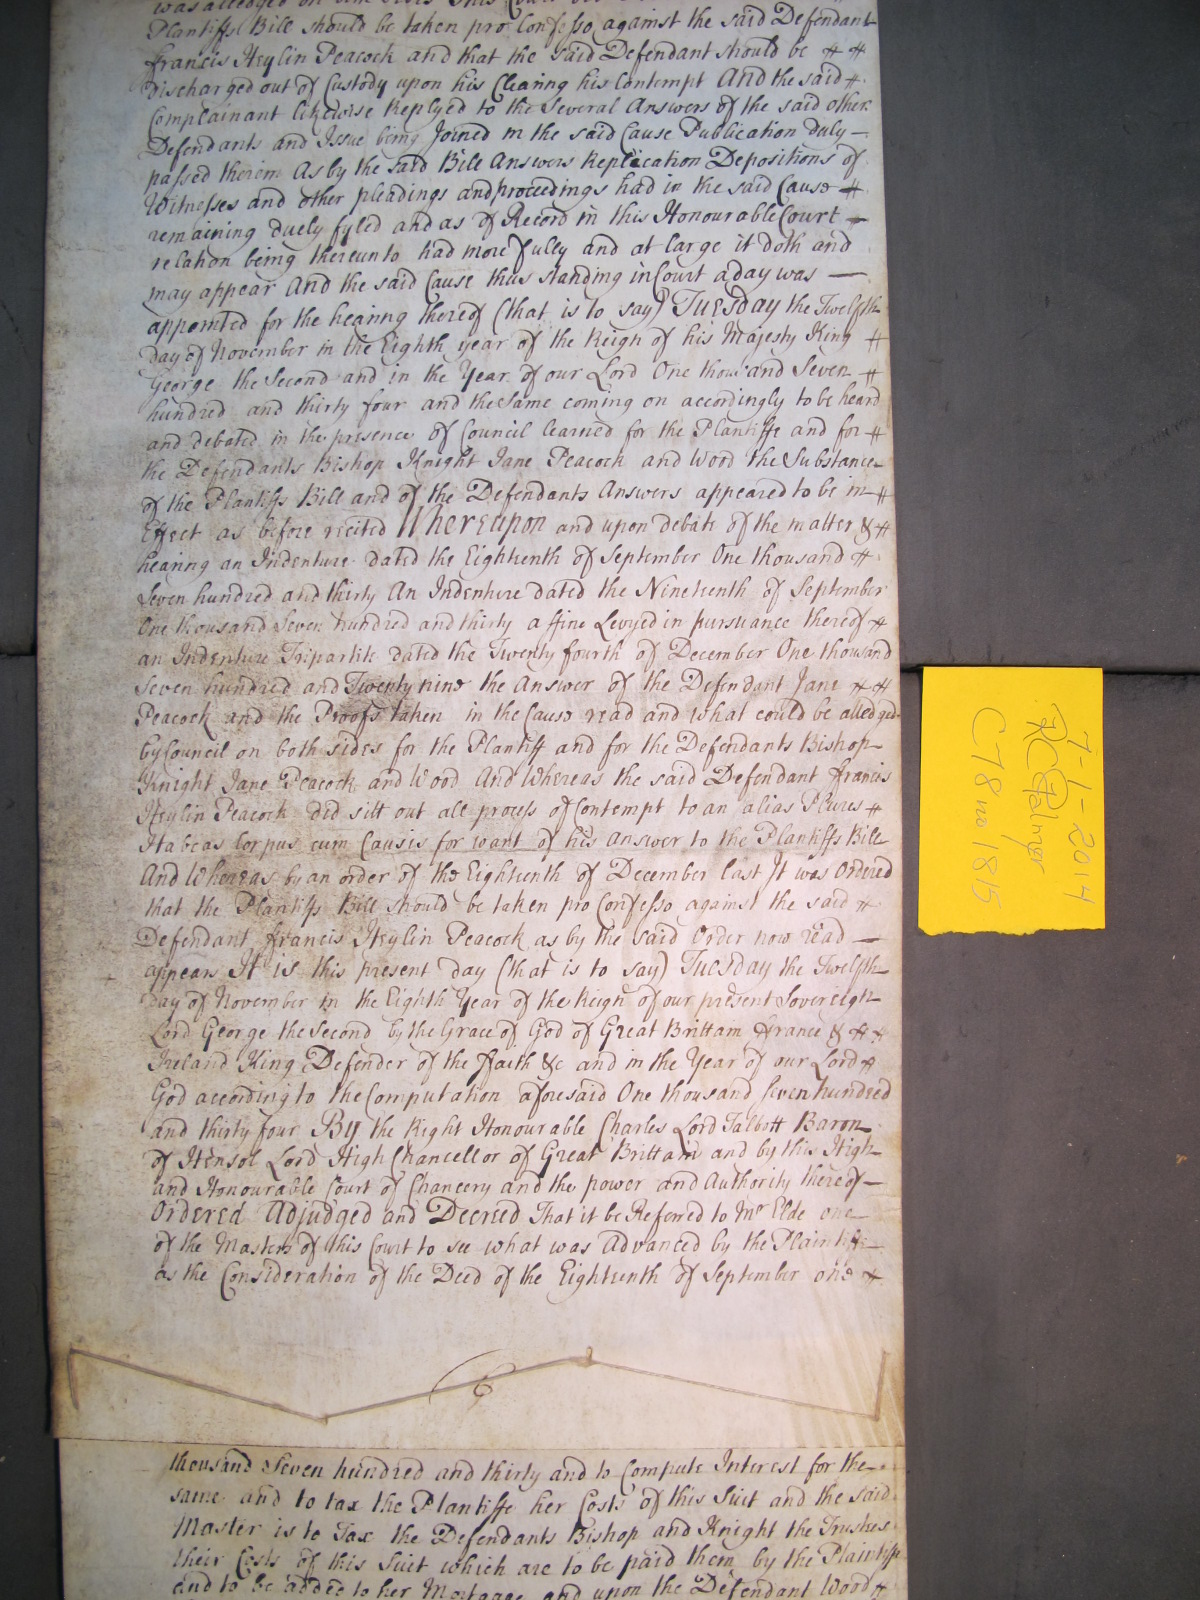 was alledged on
Plantiffs Bill should be taken pro Confesso against the said Defendant
Francis Heylin Peacock and that the said Defendant should be
discharged out of Custody upon his Clearing his Contempt And the said
Complainant likewise Replyed to the Several Answers of the said other
Defendants and Issue being Joined in the said Cause Publication duly
passed therein As by the said Bill Answers Replication Depositions of
Witnesses and other pleadings and proceedings had in the said Cause
remaining duely fyled and as of Record in this Honourable Court
relation being thereunto had more fully and at large it doth and
may appear And the said Cause thus standing in Court a day was
appointed for the hearing thereof (that is to say) Tuesday the Twelfth
day of November in the Eighth year of the Reign of his Majesty King
George the Second and in the Year of our Lord One thousand Seven
hundred and thirty four and the same coming on accordingly to be heard
and debated in the presence of Council learned for the Plantiffe and for
the Defendants Bishop Knight Jane Peacock and Wood the Substance
of the Plantiffs Bill and of the Defendants Answers appeared to be in
Effect as before recited Whereupon and upon debate of the matter &
hearing an Indenture dated the Eighteenth of September One thousand
Seven hundred and thirty An Indenture dated the Nineteenth of September
One thousand Seven hundred and thirty a ffine Levyed in pursuance thereof
an Indenture Tripartite dated the Twenty fourth of December One thousand
Seven hundred and Twenty nine the Answer of the Defendant Jane
Peacock and the Proofs taken in the Cause read and what could be alledged
by Council on both sides for the Plantiff and for the Defendants Bishop
Knight Jane Peacock and Wood And Whereas the said Defendant Francis
Heylin Peacock did sitt out all process of Contempt to an alias Plures
Habeas Corpus cum Causis for want of his Answer to the Plantiffs Bill
And Whereas by an order of the Eighteenth of December last It was Ordered
that the Plantiffs Bill should be taken pro Confesso against the said
Defendant Francis Heylin Peacock as by the said Order now read
appears It is this present day (that is to say) Tuesday the Twelfth
day of November in the Eighth Year of the Reign of our present Sovereign
Lord George the Second by the Grace of God of Great Brittain ffrance &
Ireland King Defender of the ffaith &c and in the Year of our Lord
God according to the Computation aforesaid One thousand Seven hundred
and thirty four By the Right Honourable Charles Lord Talbott Baron
of Hensol Lord High Chancellor of Great Brittain and by this High
and Honourable Court of Chancery and the power and Authority thereof
Ordered Adjudged and Decreed That it be Referred to Mr Elde one
of the Masters of this Court to see what was Advanced by the Plaintiffe
as the Consideration of the Deed of the Eighteenth of September one
6
thousand Seven hundred and thirty and to Compute Interest for the
same and to tax the Plantiffe her Costs of this Suit and the said
Master is to Tax the Defendants Bishop and Knight the Trustees
their Costs of this Suit which are to be paid them by the Plaintiffe
and to be added to her Mortgage and upon the Defendant Wood
7-1-2014
RCPalmer
C78 no 1815